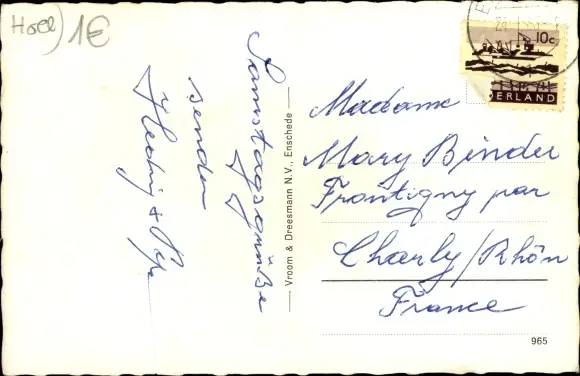 Holl) 1€
Samstagsgrüße
senden
Hedwig &
Vroom & Dreesmann N.V., Enschede
10c
ERLAND
Madame
Mary Binder
Frontigny par
Charly/Rhôn
France
965